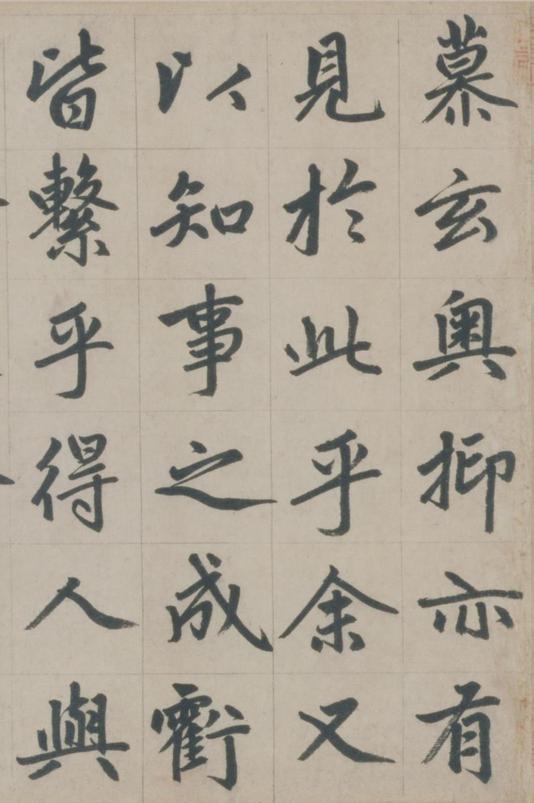 慕玄奥抑亦有
見於此乎余又
以知事之成虧
皆繫乎得人與